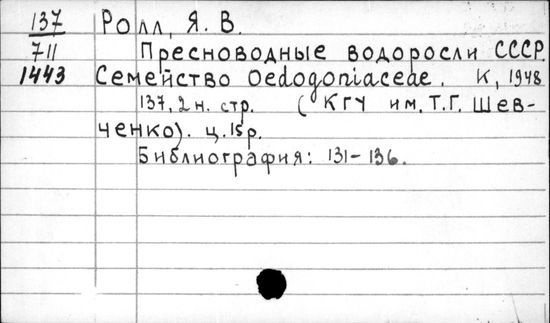 137 Ролл, Я. В.
711 Пресноводные водоросли СССР.
1443 Семейство Oedogoniaceae. К, 1948
137, 2 н. стр. (КГУ им. Т.Г. Шев-
ченко). ц. 15 р.
Библиография: 131-136.